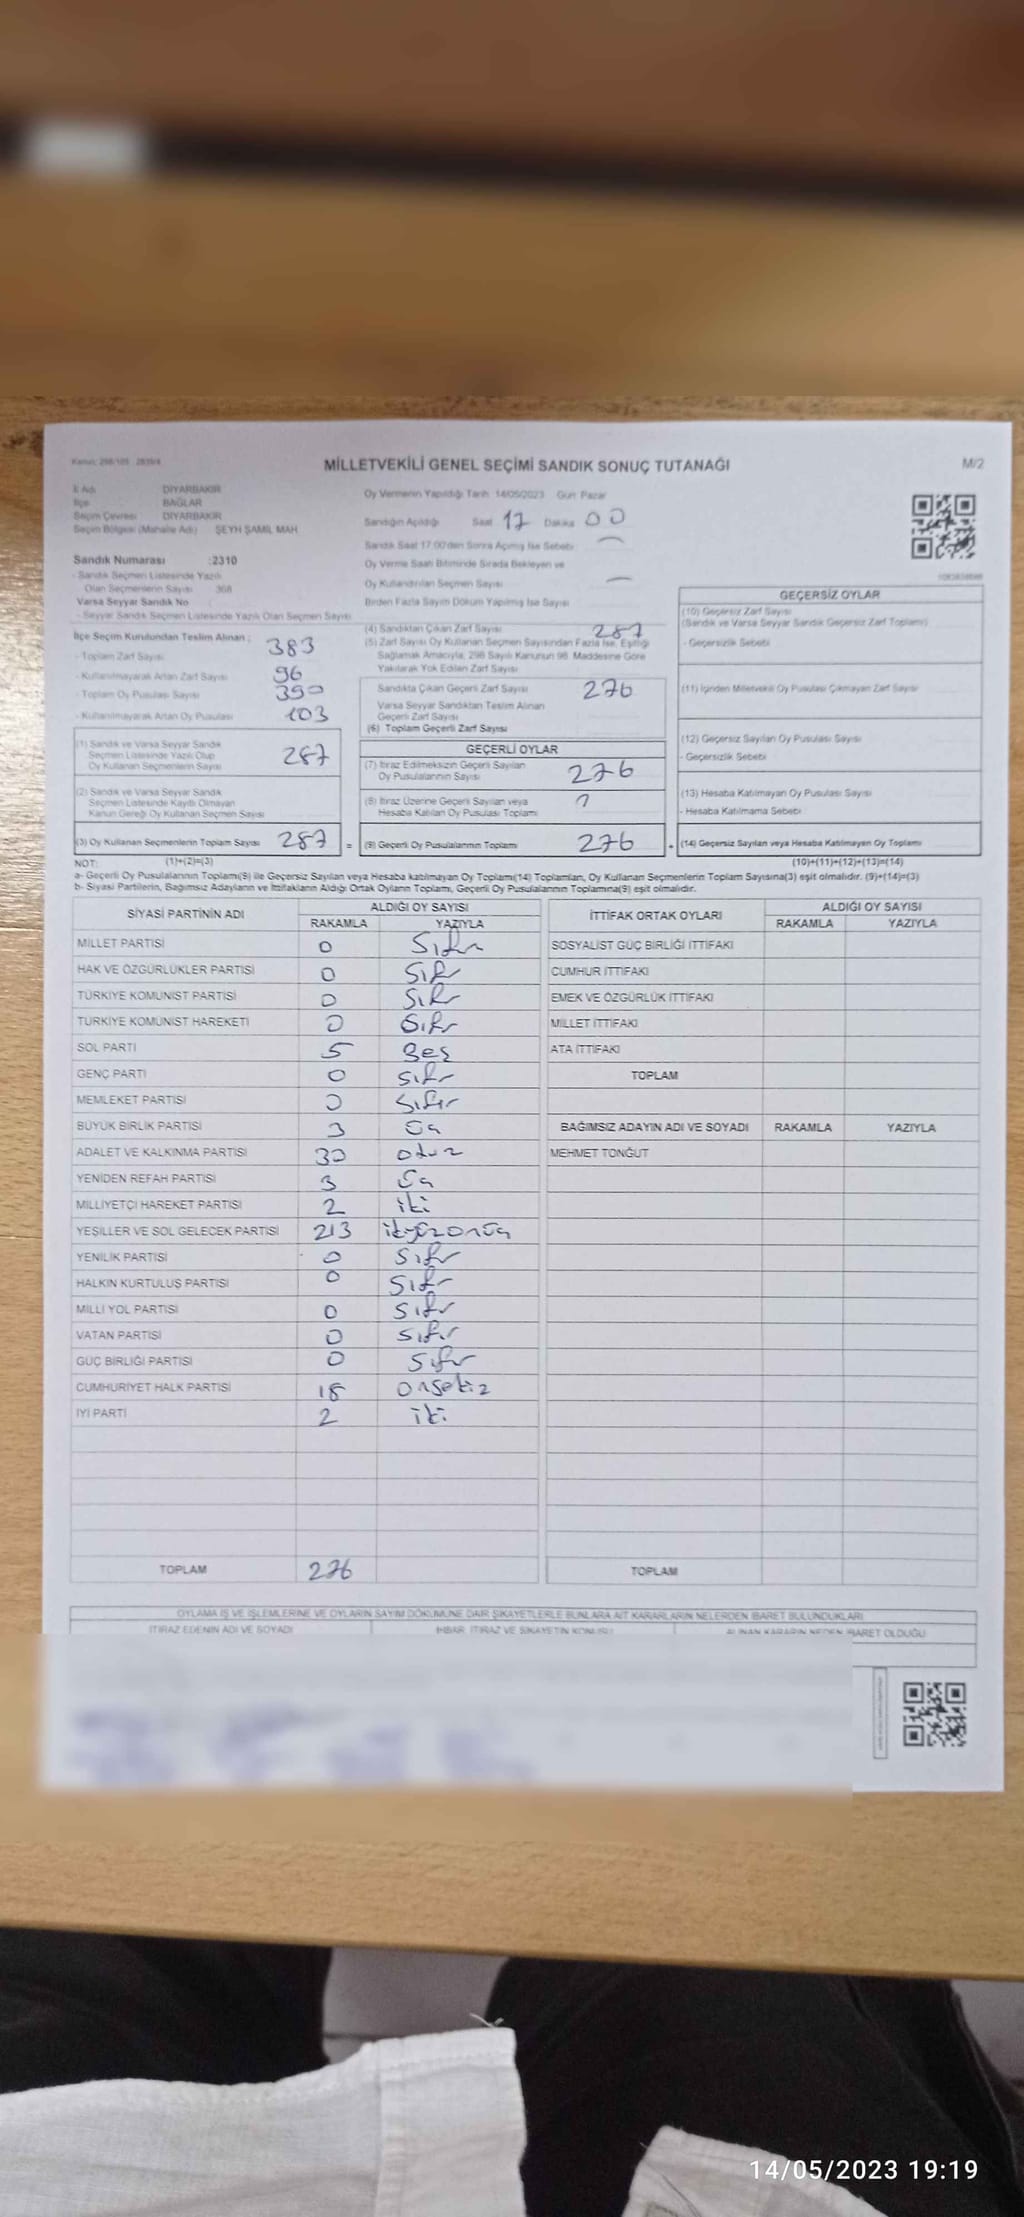 Kanun: 298/105 2839/4
MİLLETVEKİLİ GENEL SEÇİMİ SANDIK SONUÇ TUTANAĞI
M/2
İl Adı DİYARBAKIR
İlçe BAĞLAR
Seçim Çevresi DİYARBAKIR
Seçim Bölgesi (Mahalle Adı) ŞEYH ŞAMİL MAH
Sandık Numarası :2310
- Sandık Seçmen Listesinde Yazılı
Olan Seçmenlerin Sayısı 368
Varsa Seyyar Sandık No
- Seyyar Sandık Seçmen Listesinde Yazılı Olan Seçmen Sayısı
İlçe Seçim Kurulundan Teslim Alınan :
- Toplam Zarf Sayısı 383
- Kullanılmayarak Artan Zarf Sayısı 96
- Toplam Oy Pusulası Sayısı 390
- Kullanılmayarak Artan Oy Pusulası 103
(1) Sandık ve Varsa Seyyar Sandık
Seçmen Listesinde Yazılı Olup
Oy Kullanan Seçmenlerin Sayısı 287
(2) Sandık ve Varsa Seyyar Sandık
Seçmen Listesinde Kayıtlı Olmayan
Kanun Gereği Oy Kullanan Seçmen Sayısı
(3) Oy Kullanan Seçmenlerin Toplam Sayısı 287 =
Oy Vermenin Yapıldığı Tarih 14/05/2023 Gün Pazar
Sandığın Açıldığı Saat 17 Dakika 00
Sandık Saat 17.00'den Sonra Açılmış İse Sebebi
Oy Verme Saati Bitiminde Sırada Bekleyen ve
Oy Kullandırılan Seçmen Sayısı
Birden Fazla Sayım Döküm Yapılmış İse Sayısı
(4) Sandıktan Çıkan Zarf Sayısı 287
(5) Zarf Sayısı Oy Kullanan Seçmen Sayısından Fazla İse, Eşitliği
Sağlamak Amacıyla, 298 Sayılı Kanunun 98. Maddesine Göre
Yakılarak Yok Edilen Zarf Sayısı
Sandıkta Çıkan Geçerli Zarf Sayısı 276
Varsa Seyyar Sandıktan Teslim Alınan
Geçerli Zarf Sayısı
(6) Toplam Geçerli Zarf Sayısı
GEÇERLİ OYLAR
(7) İtiraz Edilmeksizin Geçerli Sayılan
Oy Pusulalarının Sayısı 276
(8) İtiraz Üzerine Geçerli Sayılan veya
Hesaba Katılan Oy Pusulası Toplamı
(9) Geçerli Oy Pusulalarının Toplamı 276 +
GEÇERSİZ OYLAR
(10) Geçersiz Zarf Sayısı
(Sandık ve Varsa Seyyar Sandık Geçersiz Zarf Toplamı)
- Geçersizlik Sebebi
(11) İçinden Milletvekili Oy Pusulası Çıkmayan Zarf Sayısı
(12) Geçersiz Sayılan Oy Pusulası Sayısı
- Geçersizlik Sebebi
(13) Hesaba Katılmayan Oy Pusulası Sayısı
- Hesaba Katılmama Sebebi
(14) Geçersiz Sayılan veya Hesaba Katılmayan Oy Toplamı
NOT: (1)+(2)=(3) (10)+(11)+(12)+(13)=(14)
a- Geçerli Oy Pusulalarının Toplamı(9) ile Geçersiz Sayılan veya Hesaba katılmayan Oy Toplamı(14) Toplamları, Oy Kullanan Seçmenlerin Toplam Sayısına(3) eşit olmalıdır. (9)+(14)=(3)
b- Siyasi Partilerin, Bağımsız Adayların ve İttifakların Aldığı Ortak Oyların Toplamı, Geçerli Oy Pusulalarının Toplamına(9) eşit olmalıdır.
SİYASİ PARTİNİN ADI ALDIĞI OY SAYISI
RAKAMLA YAZIYLA
MİLLET PARTİSİ 0 Sıfır
HAK VE ÖZGÜRLÜKLER PARTİSİ 0 Sıfır
TÜRKİYE KOMÜNİST PARTİSİ 0 Sıfır
TÜRKİYE KOMÜNİST HAREKETİ 0 Sıfır
SOL PARTİ 5 Beş
GENÇ PARTİ 0 Sıfır
MEMLEKET PARTİSİ 0 Sıfır
BÜYÜK BİRLİK PARTİSİ 3 Üç
ADALET VE KALKINMA PARTİSİ 30 Otuz
YENİDEN REFAH PARTİSİ 3 Üç
MİLLİYETÇİ HAREKET PARTİSİ 2 iki
YEŞİLLER VE SOL GELECEK PARTİSİ 213 ikiyüzonüç
YENİLİK PARTİSİ 0 Sıfır
HALKIN KURTULUŞ PARTİSİ 0 Sıfır
MİLLİ YOL PARTİSİ 0 Sıfır
VATAN PARTİSİ 0 Sıfır
GÜÇ BİRLİĞİ PARTİSİ 0 Sıfır
CUMHURİYET HALK PARTİSİ 18 Onsekiz
İYİ PARTİ 2 iki
TOPLAM 276
İTTİFAK ORTAK OYLARI ALDIĞI OY SAYISI
RAKAMLA YAZIYLA
SOSYALİST GÜÇ BİRLİĞİ İTTİFAKI
CUMHUR İTTİFAKI
EMEK VE ÖZGÜRLÜK İTTİFAKI
MİLLET İTTİFAKI
ATA İTTİFAKI
TOPLAM
BAĞIMSIZ ADAYIN ADI VE SOYADI RAKAMLA YAZIYLA
MEHMET TONĞUT
TOPLAM
OYLAMA İŞ VE İŞLEMLERİNE VE OYLARIN SAYIM DÖKÜMÜNE DAİR ŞİKAYETLERLE BUNLARA AİT KARARLARIN NELERDEN İBARET BULUNDUKLARI
İTİRAZ EDENİN ADI VE SOYADI İHBAR, İTİRAZ VE ŞİKAYETİN KONUSU ALINAN KARARIN NEDEN İBARET OLDUĞU
14/05/2023 19:19